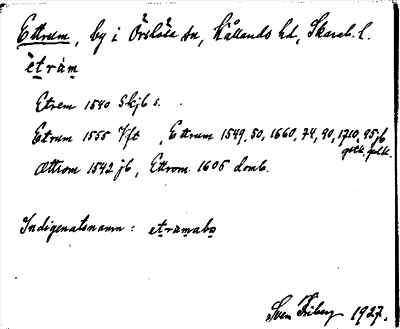 Ettrum, by i Örslösa sn, Kållands hd, Skarab. l.
ètràm̥
Etrem 1540 Skjb s.
Etrum 1555 Vft, Ettrum 1549, 50, 1660, 74, 90, 1710, 95 jb
Ættrom 1542 jb, Ettrom 1605 domb.
Indigenatsnamn: etramabo
Sven Friberg 1927.